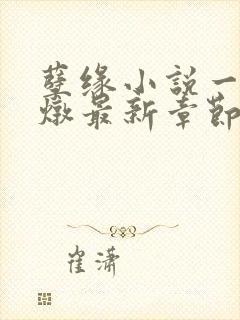 孽缘小說一
燉最新章節
崔潇